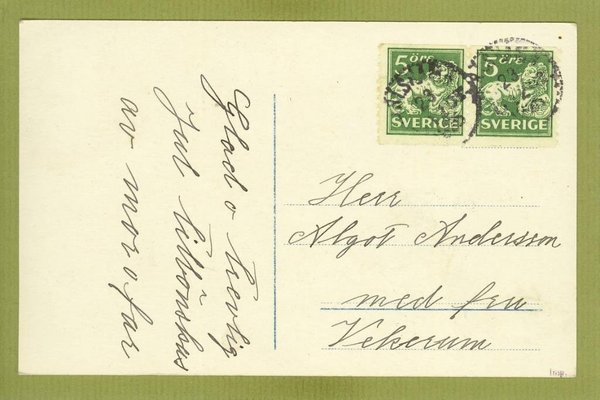 5 öre
SVERIGE
5 öre
SVERIGE
Glad o trevlig
Jul tillönskas
av mor o far
Herr
Algot Andersson
med fru
Vekerum